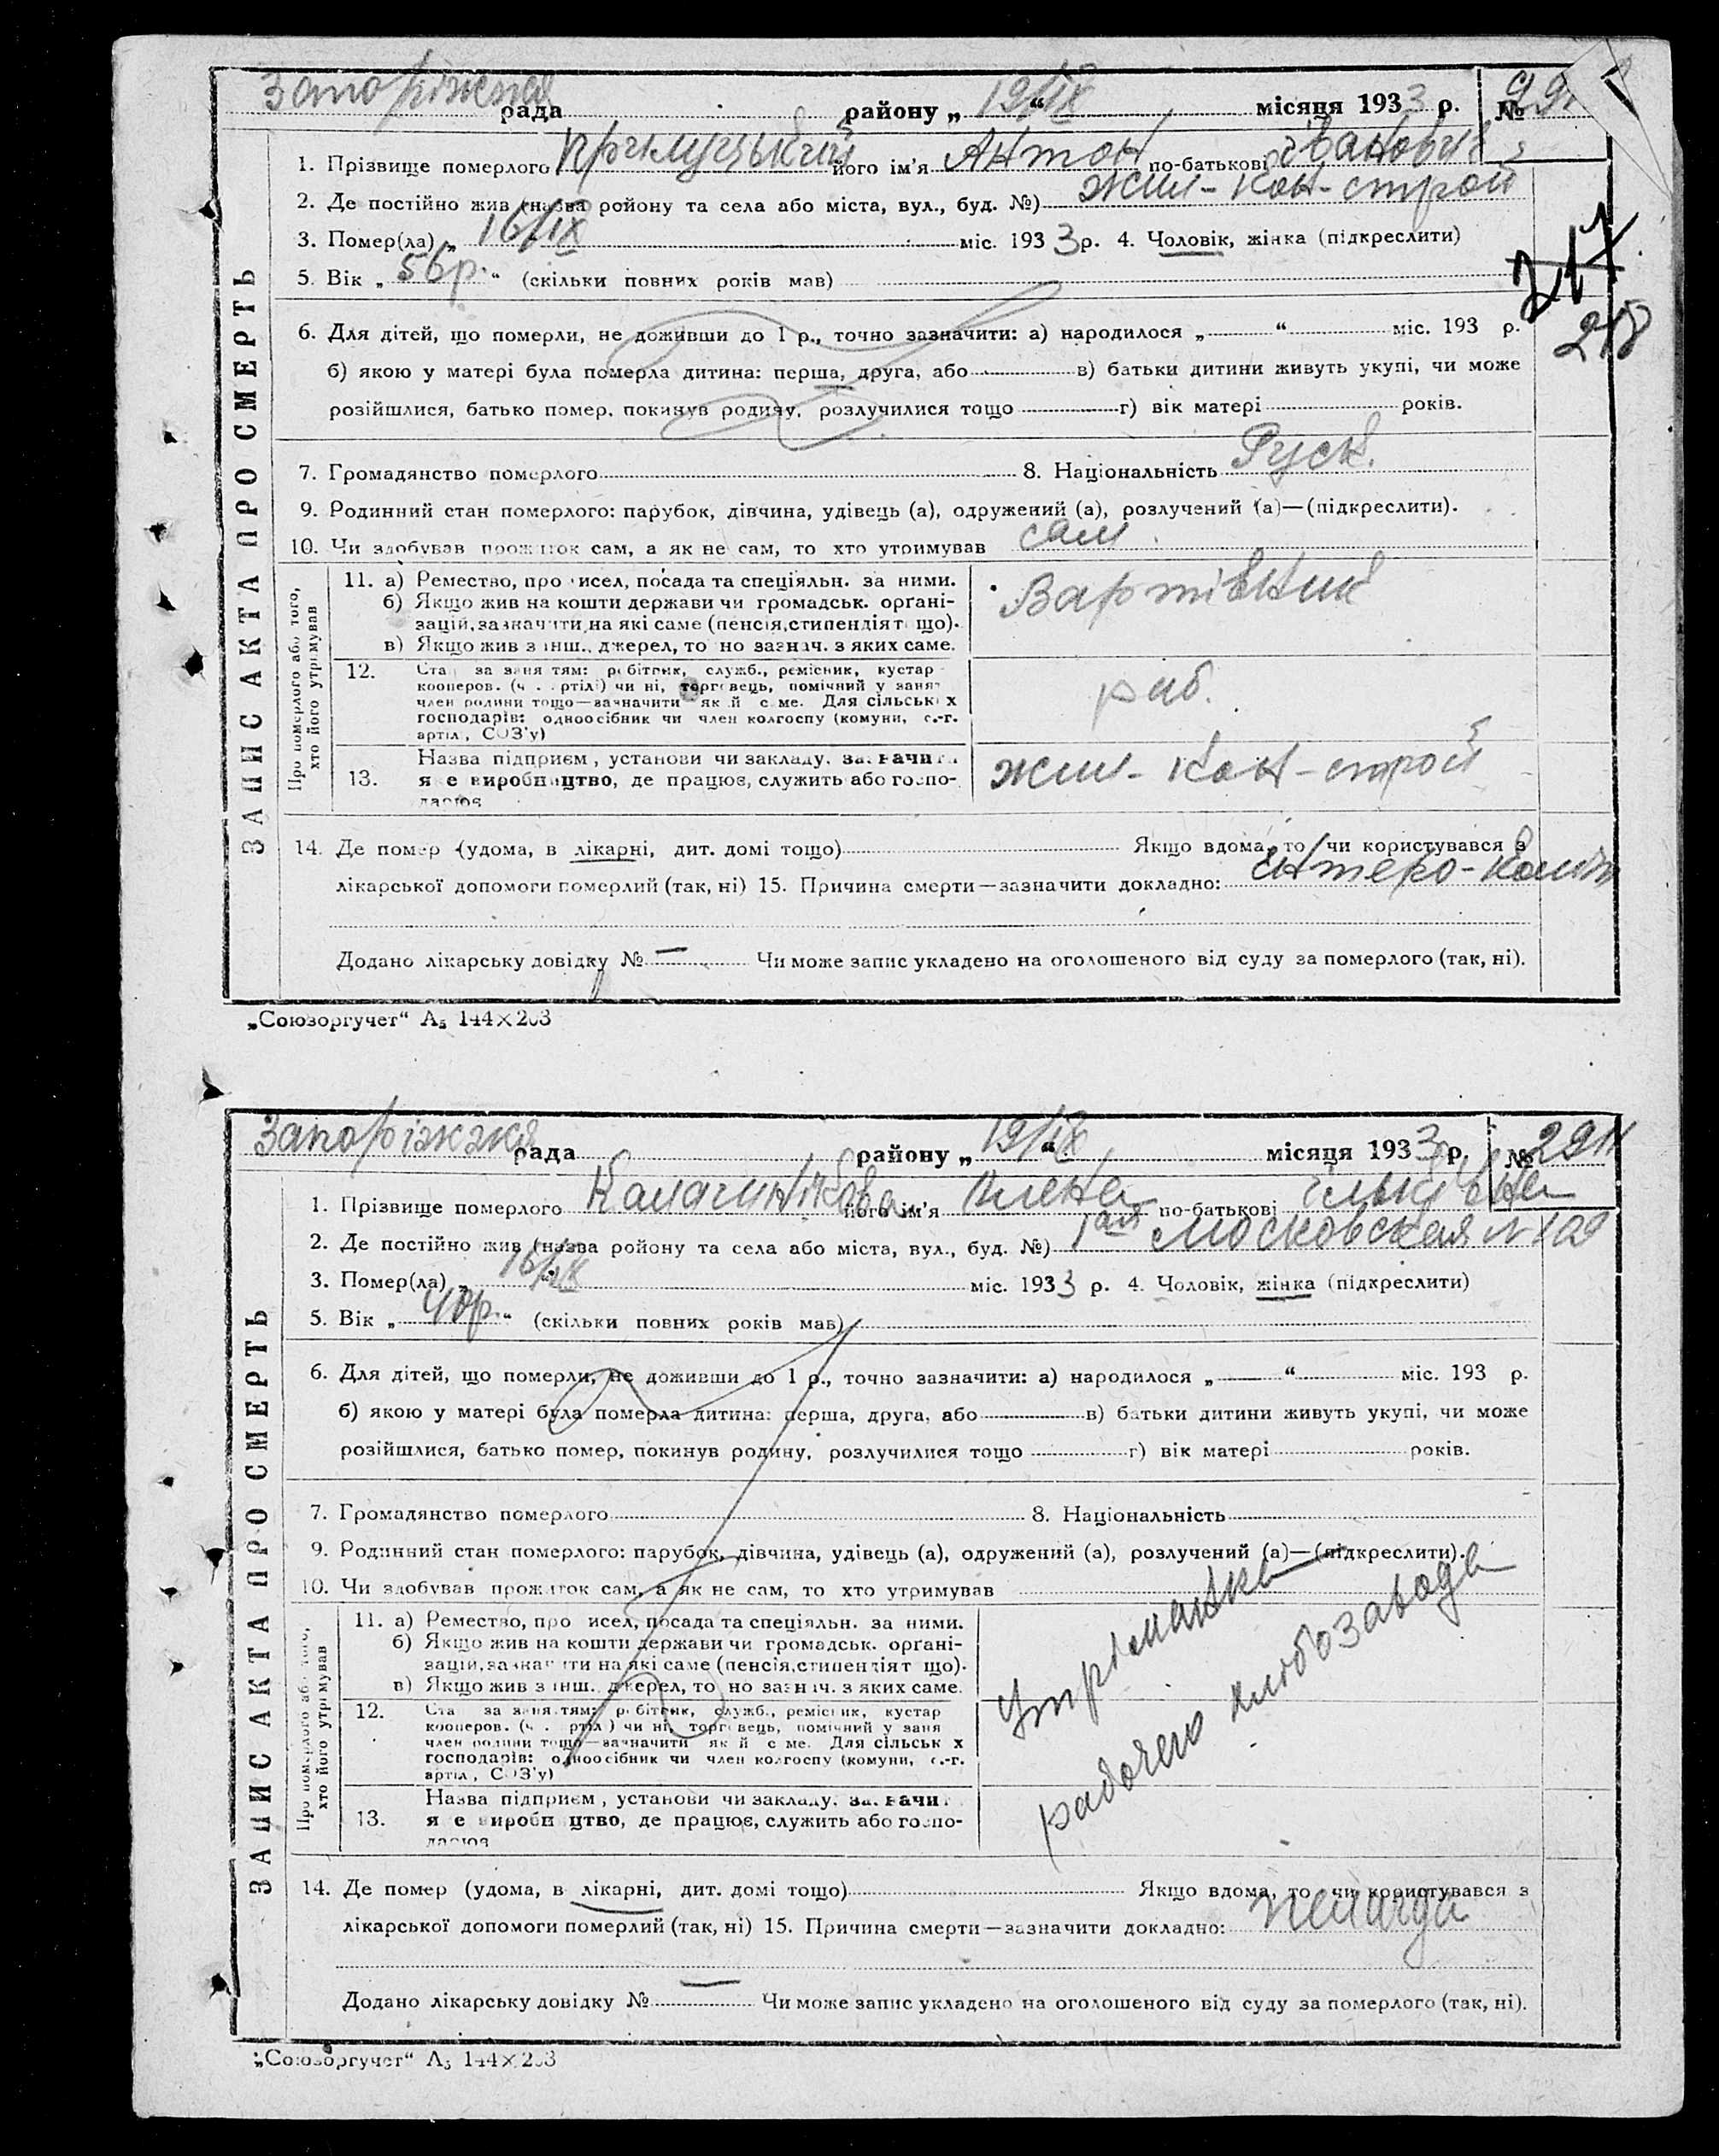 Запоріжская рада района „ 19/IX “ місяця 1933 р. №
1. Прізвище померлого Прилуцький його ім'я Антон по-батькові Іванович
2. Де постійно жив (назва ройону та села або міста, вул., буд. №) Жил-Кон-строй
3. Помер(ла) „ 16/IX міс. 1933 р. 4. Чоловік, жінка (підкреслити)
217
5. Вік „ 56 р. “ (скільки повних років мав)
6. Для дітей, що померли, не доживши до 1 р., точно зазначити: а) народилося „ “ міс. 193 р.
218
б) якою у матері була померла дитина: перша, друга, або в) батьки дитини живуть укупі, чи може
розійшлися, батько помер, покинув родину, розлучилися тощо г) вік матері років.
7. Громадянство померлого 8. Національність Руск.
9. Родинний стан померлого: парубок, дівчина, удівець (а), одружений (а), розлучений (а)—(підкреслити).
10. Чи здобував прожиток сам, а як не сам, то хто утримував сам.
ЗАПИС АКТА ПРО СМЕРТЬ
Про померлого або того,
хто його утримував
11. а) Ремество, про исел, посада та спеціяльн. за ними.
б) Якщо жив на кошти держави чи громадськ. орґані-
зацій, зазначити на які саме (пенсія, стипендія т що).
в) Якщо жив з інш. джерел, то но зазнач. з яких саме.
Вартівник
12. Ста за заня тям: робітник, служб., ремісник, кустар
кооперов. (ч . ртілі) чи ні, торговець, помічний у занят
член родини тощо—зазначити як й с ме. Для сільськ х
господарів: одноосібник чи член колгоспу (комуни, с.-г.
артіл, СОЗ'у)
раб.
13. Назва підприєм, установи чи закладу, зазначи
я е виробництво, де працює, служить або госпо-
дарює
Жил-Кон-строй
14. Де помер (удома, в лікарні, дит. домі тощо) Якщо вдома, то чи користувався з
лікарської допомоги померлий (так, ні) 15. Причина смерти—зазначити докладно: Ентеро-коліт
Додано лікарську довідку № — Чи може запис укладено на оголошеного від суду за померлого (так, ні).
„Союзоргучет“ А₅ 144×203
Запоріжжя рада району „ 19/IX “ місяця 1933 р. №
1. Прізвище померлого його ім'я по-батькові
2. Де постійно жив (назва ройону та села або міста, вул., буд. №) 1ая Московская
3. Помер(ла) „ 16/IX міс. 1933 р. 4. Чоловік, жінка (підкреслити)
5. Вік „ 40 р. “ (скільки повних років мав)
6. Для дітей, що померли, не доживши до 1 р., точно зазначити: а) народилося „ “ міс. 193 р.
б) якою у матері була померла дитина: перша, друга, або в) батьки дитини живуть укупі, чи може
розійшлися, батько помер, покинув родину, розлучилися тощо г) вік матері років.
7. Громадянство померлого 8. Національність
9. Родинний стан померлого: парубок, дівчина, удівець (а), одружений (а), розлучений (а)—(підкреслити).
10. Чи здобував прожиток сам, а як не сам, то хто утримував
ЗАПИС АКТА ПРО СМЕРТЬ
Про померлого або того,
хто його утримував
11. а) Ремество, про исел, посада та спеціяльн. за ними.
б) Якщо жив на кошти держави чи громадськ. орґані-
зацій, зазначити на які саме (пенсія, стипендія т що).
в) Якщо жив з інш. джерел, то но зазнач. з яких саме.
12. Ста за заня тям: робітник, служб., ремісник, кустар
кооперов. (ч . ртіл) чи ні, торговець, помічний у заня
член родини тощо—зазначити як й с ме. Для сільськ х
господарів: одноосібник чи член колгоспу (комуни, с.-г.
артіл, СОЗ'у)
13. Назва підприєм, установи чи закладу, зазначи
я е виробництво, де працює, служить або госпо-
дарює
Утриманка
рабочего хлібозавода
14. Де помер (удома, в лікарні, дит. домі тощо) Якщо вдома, то чи користувався з
лікарської допомоги померлий (так, ні) 15. Причина смерти—зазначити докладно: Пелагра
Додано лікарську довідку № — Чи може запис укладено на оголошеного від суду за померлого (так, ні).
„Союзоргучет“ А₅ 144×203